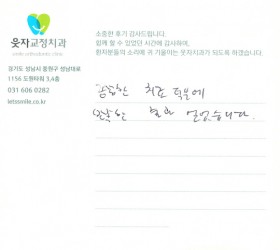 웃자교정치과
경기도 성남시 중원구 성남대로
1156 도원타워 3,4층
031 606 0282
letssmile.co.kr
소중한 후기 감사드립니다.
함께 할 수 있었던 시간에 감사하며,
환자분들의 소리에 귀 기울이는 웃자치과가 되도록 하겠습니다.
꼼꼼한 치료 덕분에
만족한 결과 얻었습니다.